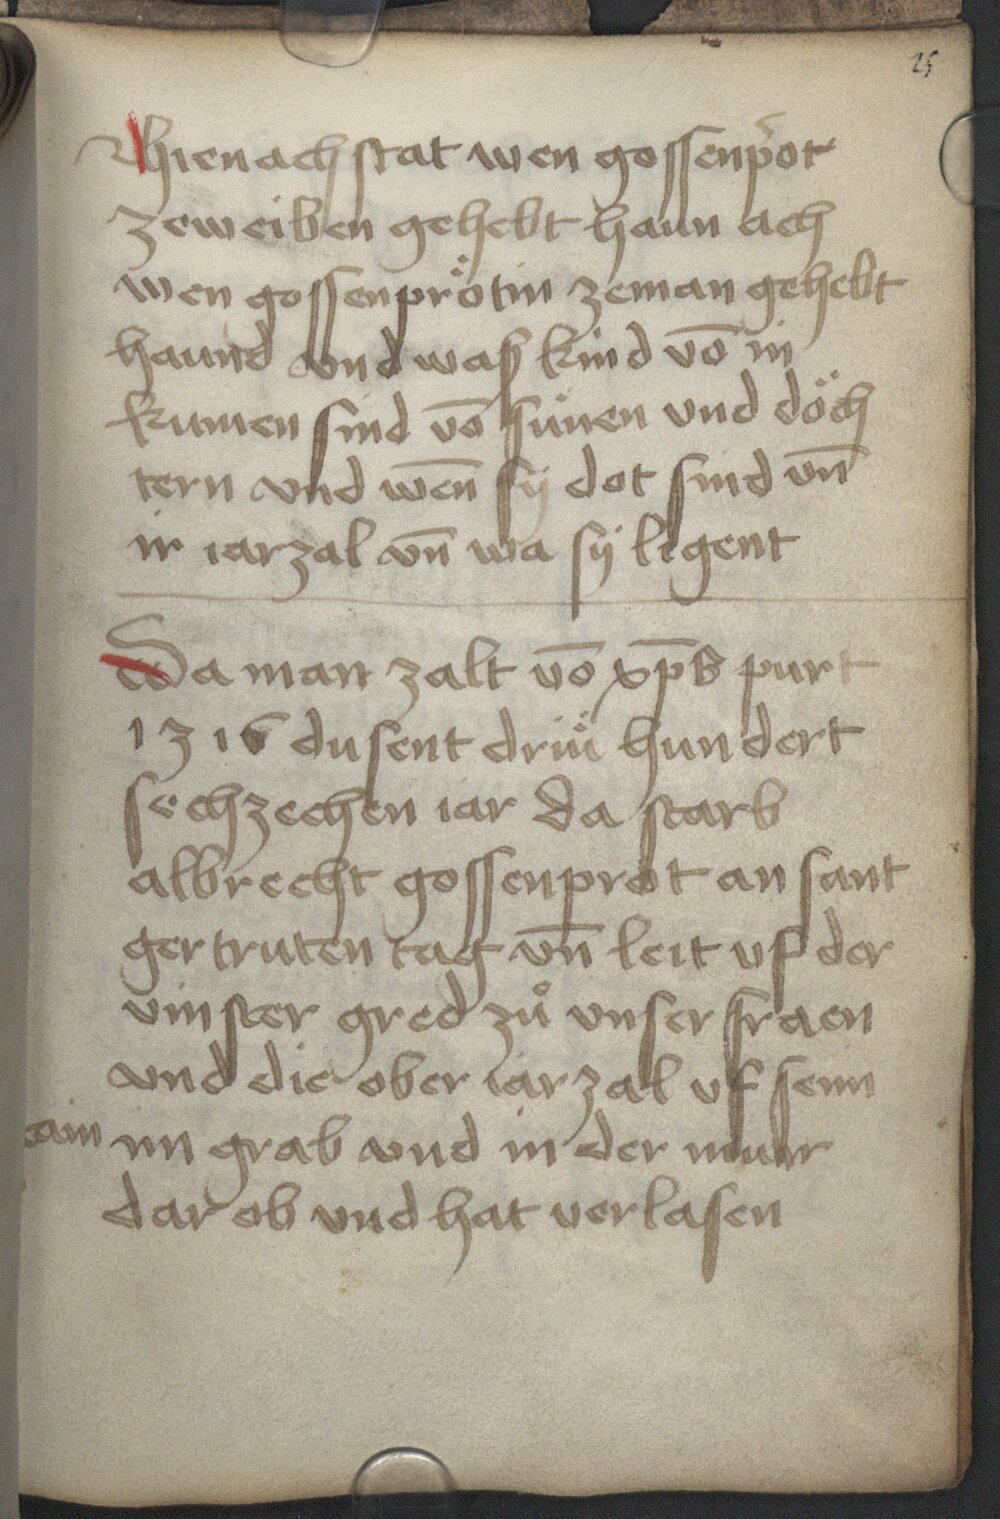 25
Hienach stat wen gossenprot
zeweiben gehebt haun ach
wen gossenprötin zeman gehebt
haund vnd wass kind vō in
kumen sind vō sünen vnd döch
tern vnd wen̄ sij dot sind vn̄
ir iarzal vn̄ wa sij ligent
Da man zalt vō xp̄s purt
1316 dusent driü hundert
sechzechen iar da starb
albrecht gossenprot an sant
gertruten tag vn̄ leit vf der
vinster gred zů vnser fraen
vnd die ober iarzal vf seim
grab vnd in der mur
dar ob vnd hat verlasen